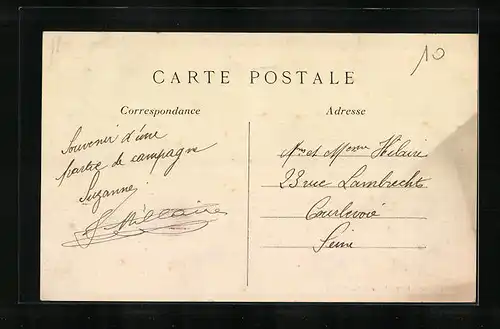 10
CARTE POSTALE
Correspondance
Adresse
Souvenir d'une
partie de campagne
Suzanne
Hillaire
Mr et Mme Hilaire
23 rue Lambrechts
Courbevoie
Seine